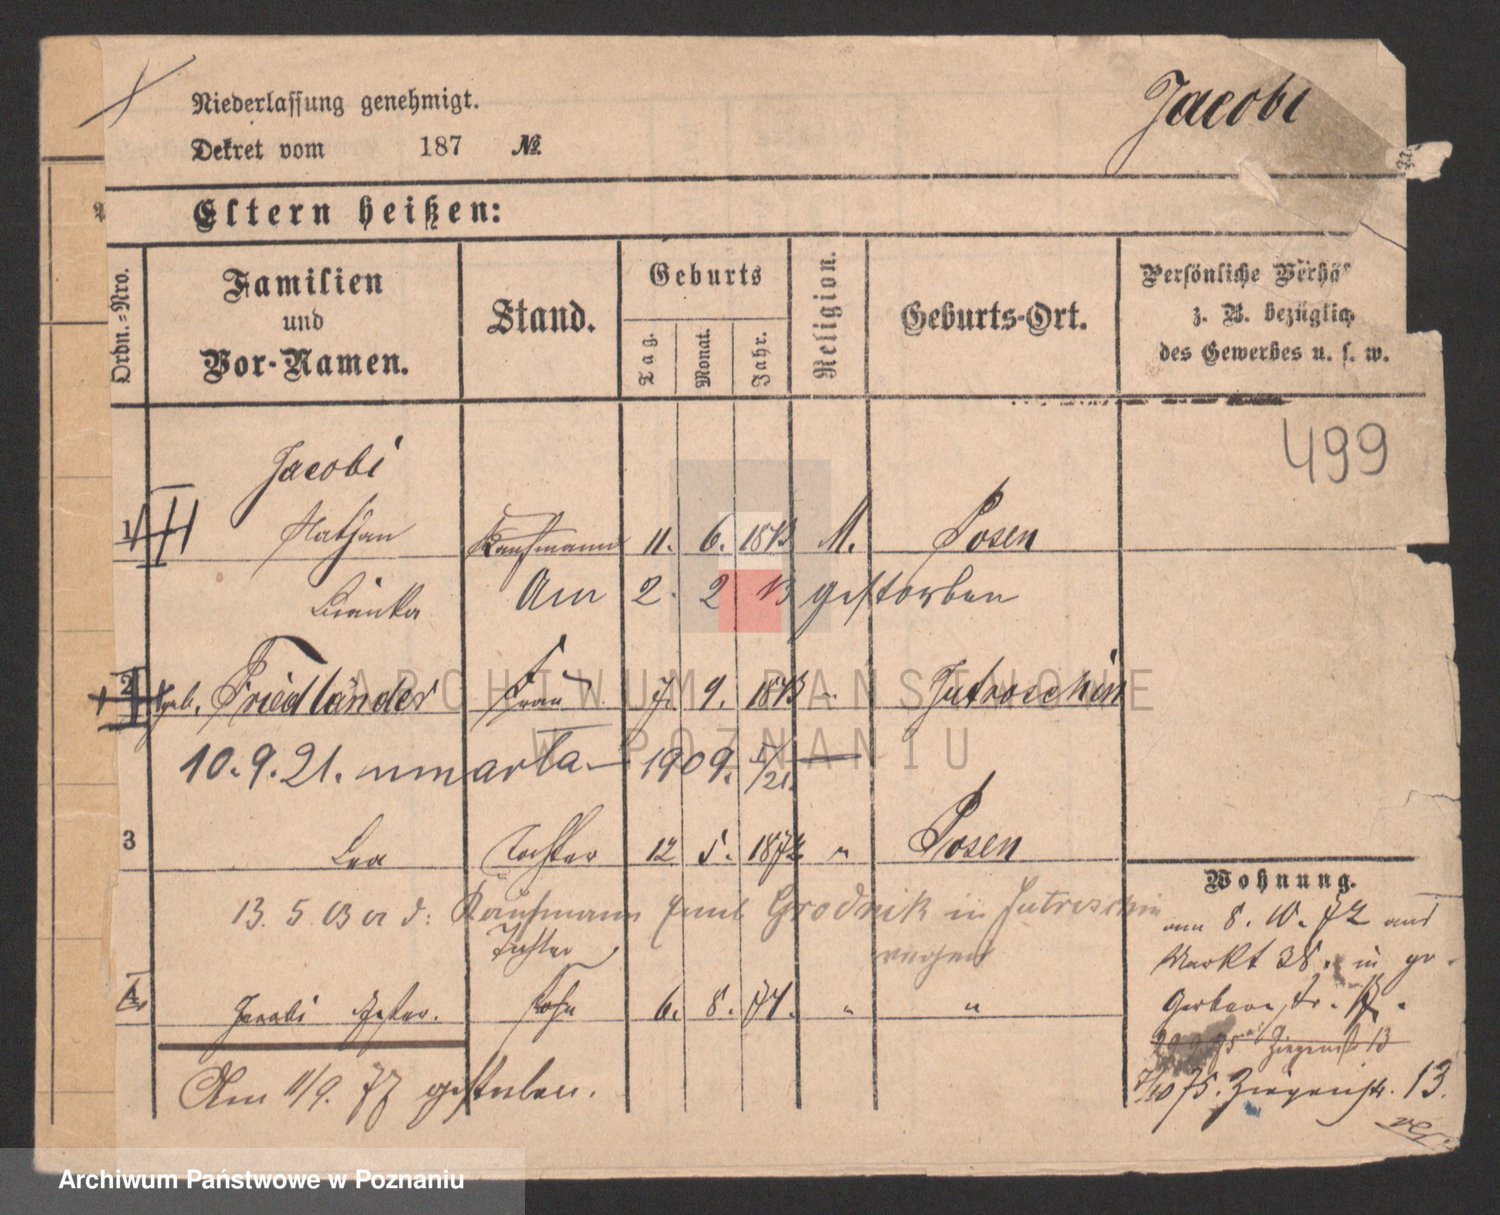 Niederlassung genehmigt.
Jacobi
Dekret vom 187 No.
Eltern heißen:
Ordn.-Nro.
Familien
und
Vor-Namen.
Stand.
Geburts
Tag.
Monat.
Jahr.
Religion.
Geburts-Ort.
Persönliche Verhä
z. B. bezüglich
des Gewerbes u. s. w.
499
Jacobi
1 Nathan Kaufmann 11. 6. 1843 M. Posen
Bianka Am 2. 2 13 gestorben
2 geb. Friedländer Frau 7. 9. 1843 " Jutroschin
10. 9. 21. 1909.
3 Lea Tochter 12 5. 1872 " Posen
13. 5. 03 Kaufmann Emil Grodnik in Jutroschin
Tochter
4 Jacobi Sohn 6. 8. 74. " "
Am 11/9. 77 gestorben.
Wohnung.
8. 10. 72
Markt 38. in gr.
Gerberstr.
Ziegenstr 13
7/10 75. Ziegenstr. 13.
ARCHIWUM PAŃSTWOWE
W POZNANIU
Archiwum Państwowe w Poznaniu